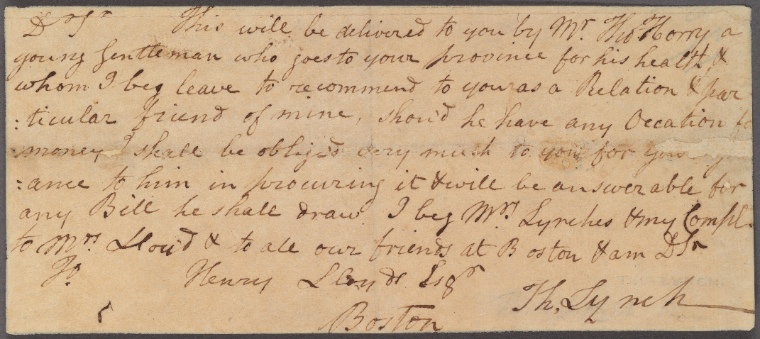 Dr Sr This will be delivered to you by Mr. Tho Horry a
young Gentleman who goes to your province for his health, &
whom I beg leave to recommend to you as a Relation & par
:ticular friend of mine, shou'd he have any Occation for
money I shall be oblig'd very much to you for your
:ance to him in procuring it & will be answerable for
any Bill he shall draw I beg Mrs Lynches & my Compl
to Mrs Lloyd & to all our friends at Boston & am Dr Sr
To Henry Lloyd Esqr
Th. Lynch
Boston